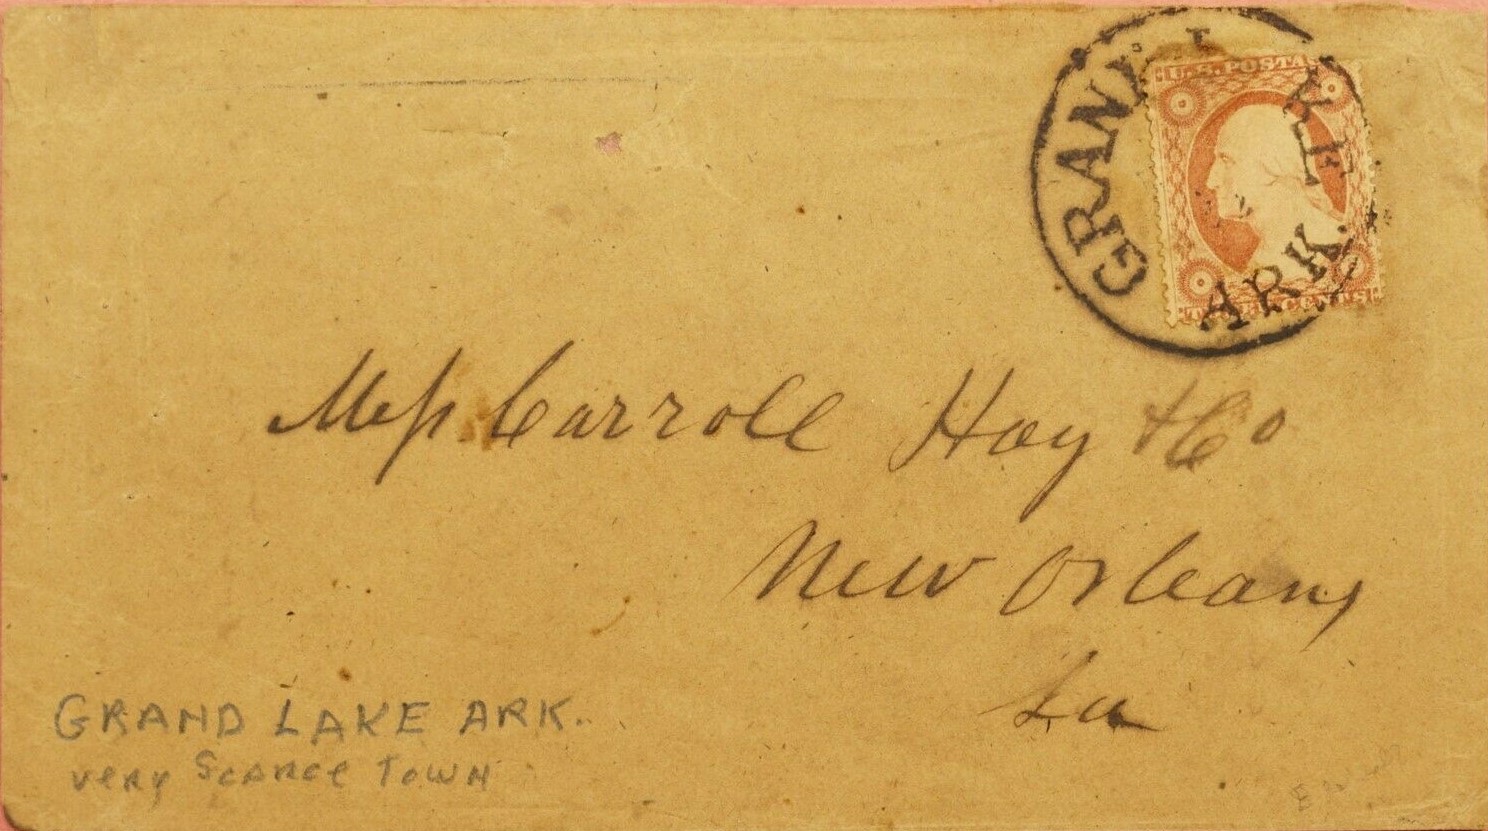 GRAND LAKE
ARK.
U.S. POSTA
THREE CENTS
Mess Carroll Hoy & Co
New Orleans
La
GRAND LAKE ARK.
very Scarce Town